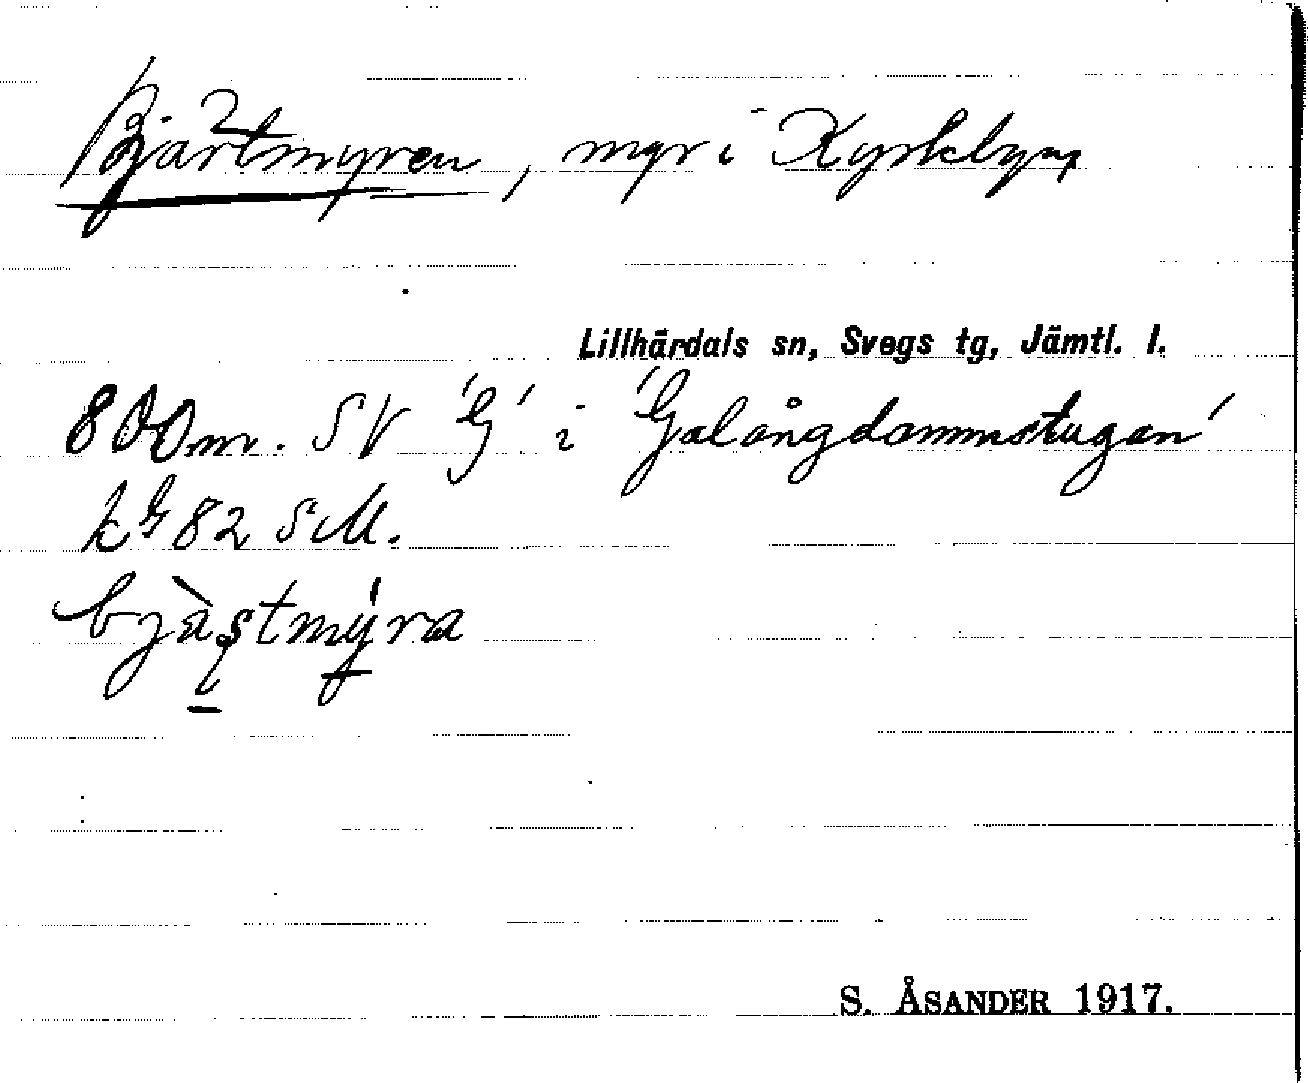 Bjärtmyren, myr i Kyrkbyn
Lillhärdals sn, Svegs tg, Jämtl. l.
800 m. SV 'G' i 'Galångdammstugan'
kg 82 SM.
bjästmýra
S. ÅSANDER 1917.